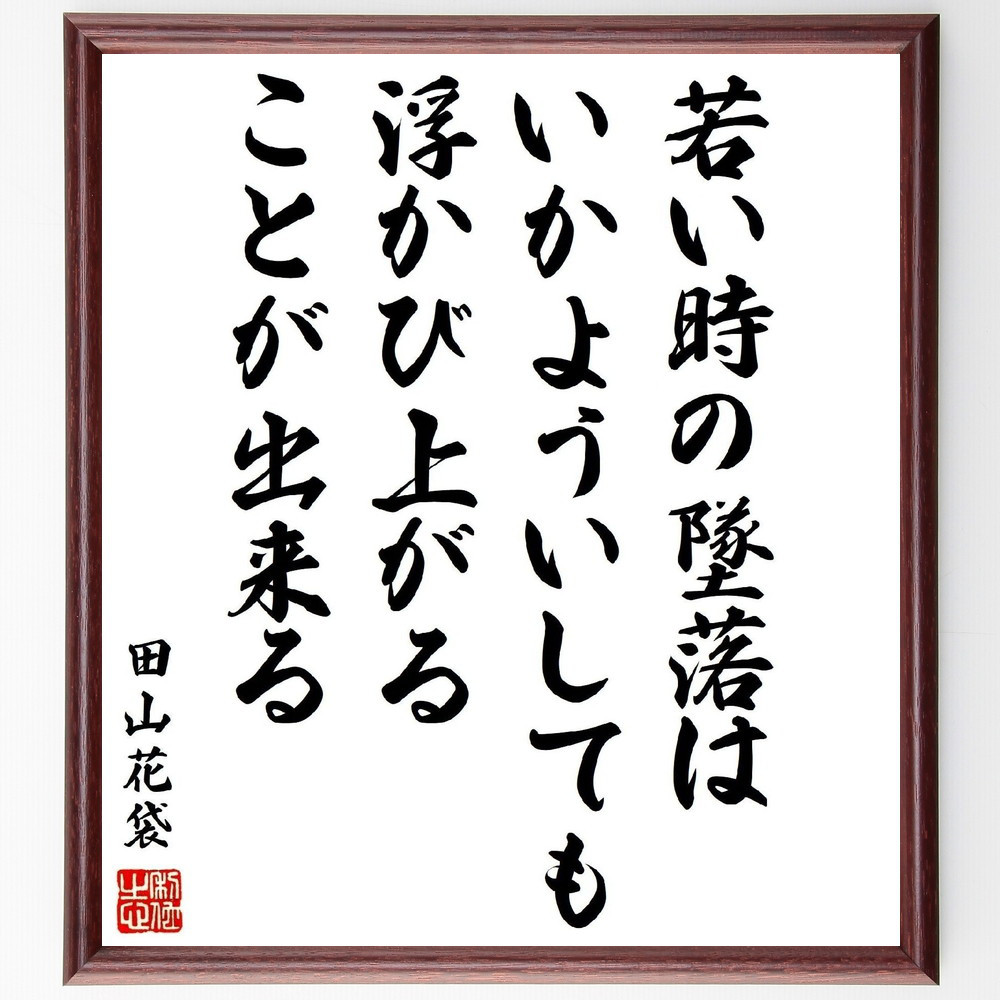 若い時の墜落は
いかよういしても
浮かび上がる
ことが出来る
田山花袋